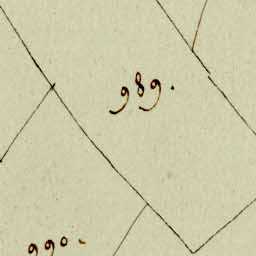 989.
990.